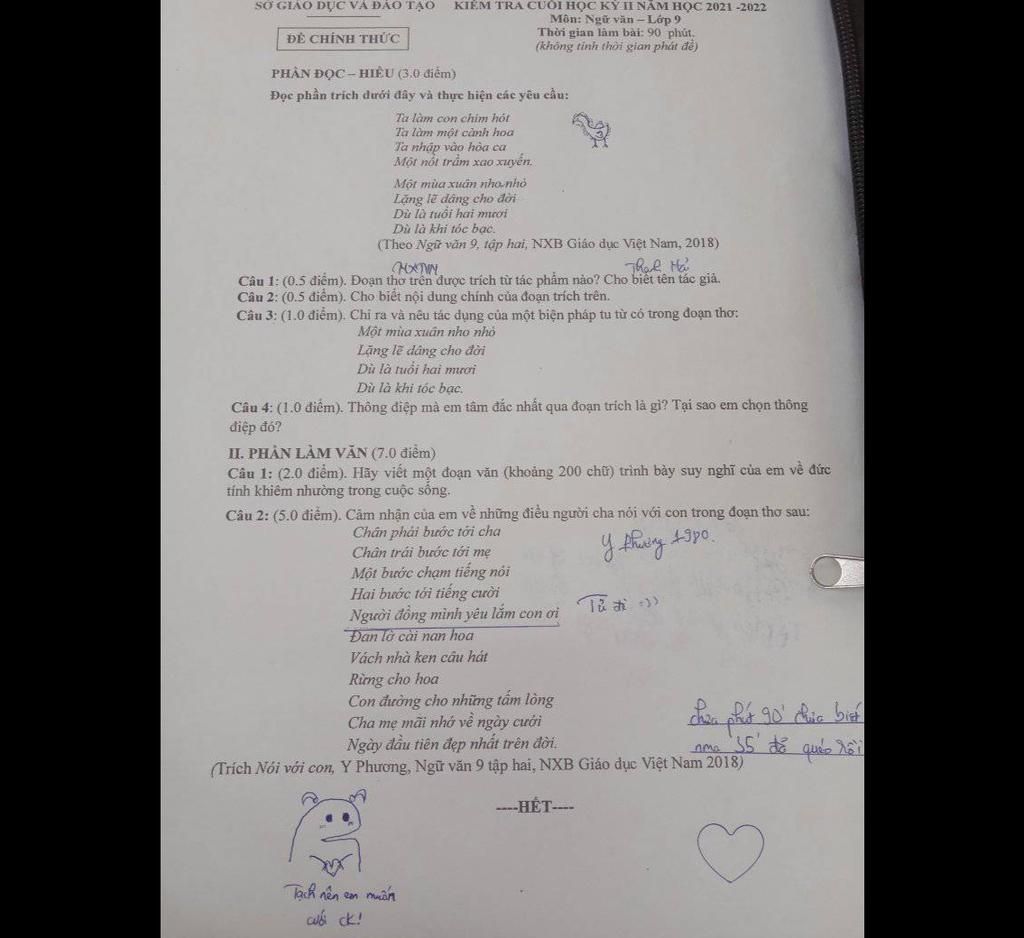 SỞ GIÁO DỤC VÀ ĐÀO TẠO KIỂM TRA CUỐI HỌC KỲ II NĂM HỌC 2021 -2022
Môn: Ngữ văn – Lớp 9
ĐỀ CHÍNH THỨC Thời gian làm bài: 90 phút.
(không tính thời gian phát đề)
PHẦN ĐỌC – HIỂU (3.0 điểm)
Đọc phần trích dưới đây và thực hiện các yêu cầu:
Ta làm con chim hót
Ta làm một cành hoa
Ta nhập vào hòa ca
Một nốt trầm xao xuyến.
Một mùa xuân nho nhỏ
Lặng lẽ dâng cho đời
Dù là tuổi hai mươi
Dù là khi tóc bạc.
(Theo Ngữ văn 9, tập hai, NXB Giáo dục Việt Nam, 2018)
MXNN Thanh Hải
Câu 1: (0.5 điểm). Đoạn thơ trên được trích từ tác phẩm nào? Cho biết tên tác giả.
Câu 2: (0.5 điểm). Cho biết nội dung chính của đoạn trích trên.
Câu 3: (1.0 điểm). Chỉ ra và nêu tác dụng của một biện pháp tu từ có trong đoạn thơ:
Một mùa xuân nho nhỏ
Lặng lẽ dâng cho đời
Dù là tuổi hai mươi
Dù là khi tóc bạc.
Câu 4: (1.0 điểm). Thông điệp mà em tâm đắc nhất qua đoạn trích là gì? Tại sao em chọn thông
điệp đó?
II. PHẦN LÀM VĂN (7.0 điểm)
Câu 1: (2.0 điểm). Hãy viết một đoạn văn (khoảng 200 chữ) trình bày suy nghĩ của em về đức
tính khiêm nhường trong cuộc sống.
Câu 2: (5.0 điểm). Cảm nhận của em về những điều người cha nói với con trong đoạn thơ sau:
Chân phải bước tới cha
Y Phương 1980.
Chân trái bước tới mẹ
Một bước chạm tiếng nói
Hai bước tới tiếng cười
Người đồng mình yêu lắm con ơi Tủ đi =))
Đan lờ cài nan hoa
Vách nhà ken câu hát
Rừng cho hoa
Con đường cho những tấm lòng
Cha mẹ mãi nhớ về ngày cưới
Ngày đầu tiên đẹp nhất trên đời.
90' chưa biết
nma 35' đã rồi
(Trích Nói với con, Y Phương, Ngữ văn 9 tập hai, NXB Giáo dục Việt Nam 2018)
----HẾT----
Tạch nên em muốn
cưới ck!